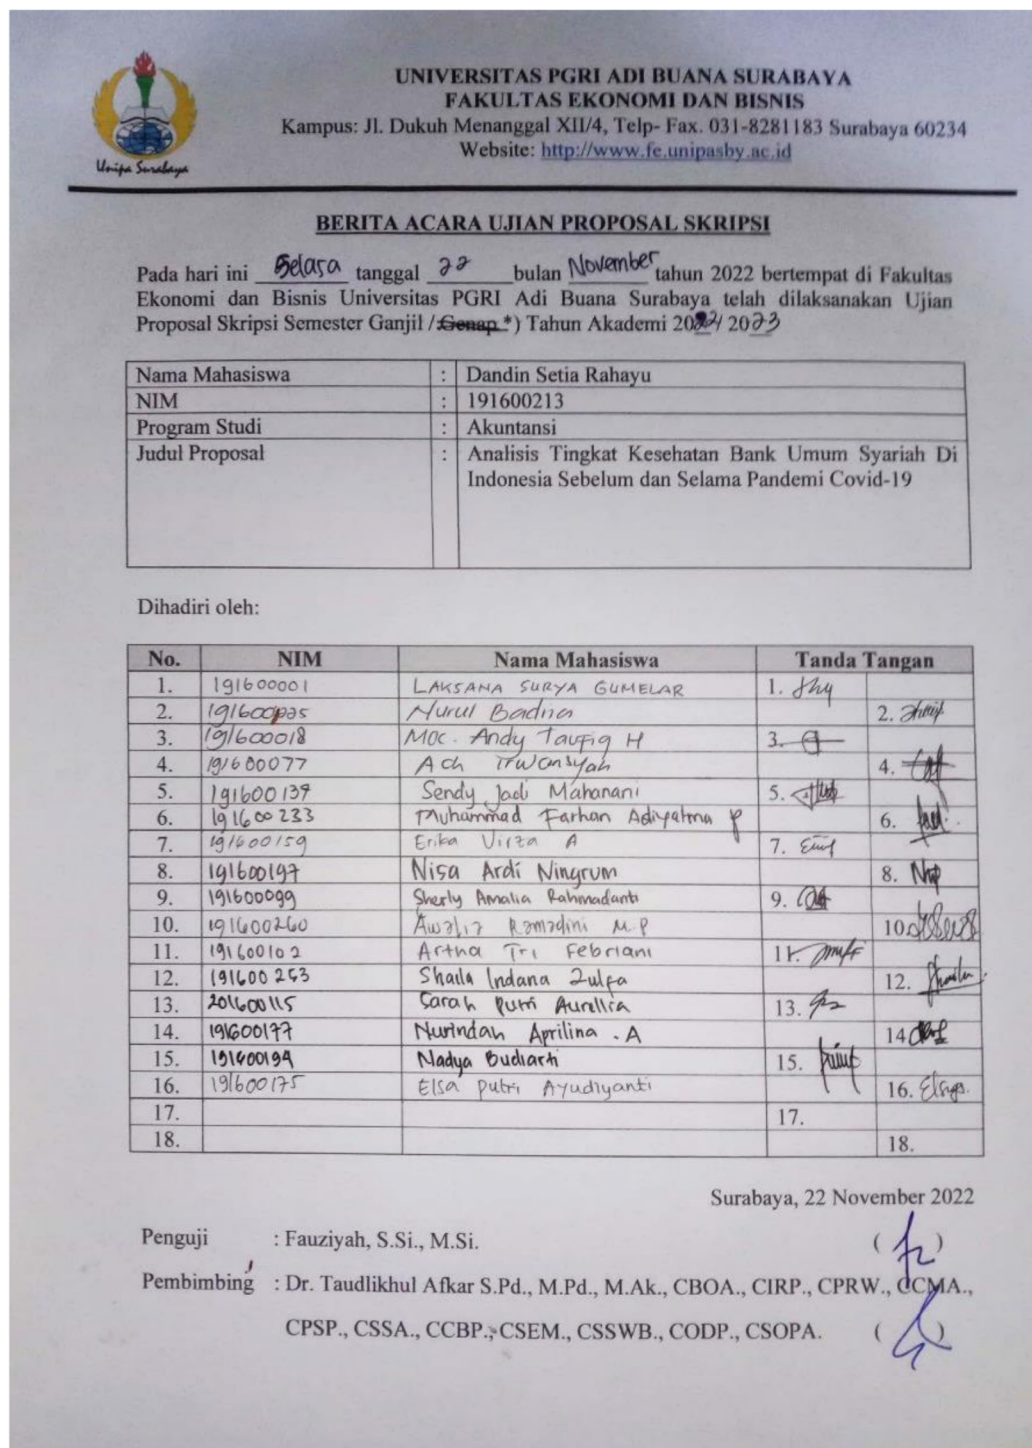 Unipa Surabaya
UNIVERSITAS PGRI ADI BUANA SURABAYA
FAKULTAS EKONOMI DAN BISNIS
Kampus: Jl. Dukuh Menanggal XII/4, Telp- Fax. 031-8281183 Surabaya 60234
Website: http://www.fe.unipasby.ac.id
BERITA ACARA UJIAN PROPOSAL SKRIPSI
Pada hari ini Selasa tanggal 22 bulan November tahun 2022 bertempat di Fakultas
Ekonomi dan Bisnis Universitas PGRI Adi Buana Surabaya telah dilaksanakan Ujian
Proposal Skripsi Semester Ganjil / Genap *) Tahun Akademi 2022/ 2023
Nama Mahasiswa : Dandin Setia Rahayu
NIM : 191600213
Program Studi : Akuntansi
Judul Proposal : Analisis Tingkat Kesehatan Bank Umum Syariah Di
Indonesia Sebelum dan Selama Pandemi Covid-19
Dihadiri oleh:
No. NIM Nama Mahasiswa Tanda Tangan
1. 191600001 LAKSANA SURYA GUMELAR 1.
2. Nurul Badria 2.
3. 191600018 Moc. Andy Taufiq H 3.
4. 191600077 Ach Irwansyah 4.
5. 191600139 Sendy Jadi Mahanani 5.
6. 191600233 Muhammad Farhan Adiyatma P 6.
7. 191600159 Erika Virza A 7.
8. 191600197 Nisa Ardi Ningrum 8.
9. 191600099 Sherly Amalia Rahmadanti 9.
10. 191600260 Awalia Ramadini M.P 10.
11. 191600102 Artha Tri Febriani 11.
12. 191600253 Shaila Indana Zulfa 12.
13. 201600115 Sarah Putri Aurellia 13.
14. 191600177 Nurindah Aprilina . A 14.
15. 191600194 Nadya Budiarti 15.
16. 191600175 Elsa Putri Ayudiyanti 16.
17. 17.
18. 18.
Surabaya, 22 November 2022
Penguji : Fauziyah, S.Si., M.Si. ( )
Pembimbing : Dr. Taudlikhul Afkar S.Pd., M.Pd., M.Ak., CBOA., CIRP., CPRW., CCMA.,
CPSP., CSSA., CCBP., CSEM., CSSWB., CODP., CSOPA. ( )